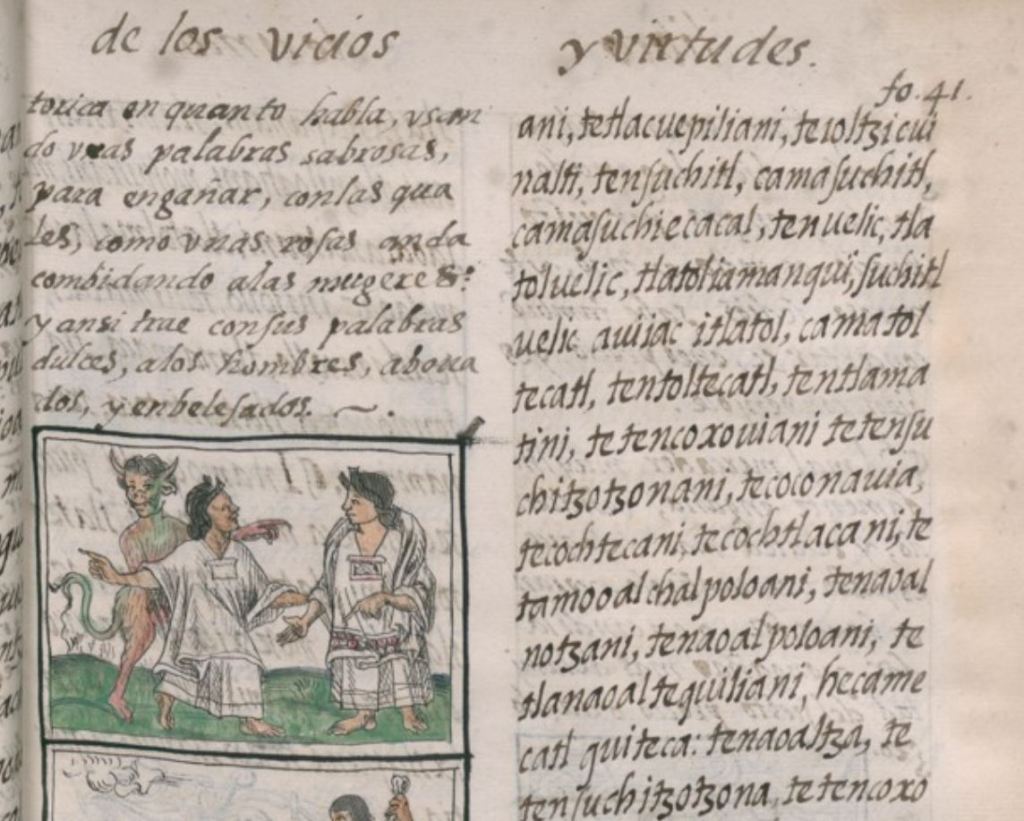 de los vicios
y virtudes.
fo. 41.
torica en quanto habla, vsan
do vnas palabras sabrosas,
para engañar, con las qua
les, como vnas rosas anda
combidando a las mugeres:
y ansi trae con sus palabras
dulces, a los hombres, aboua
dos, y enbelesados. ~ .
ani, tetlacuepiliani, teioltzicui
nalti, tensuchitl, camasuchitl,
camasuchiecacal, tenuelic, tla
toluelic, tlatoliamanqui, suchitl
uelic auiiac itlatol, camatol
tecatl, tentoltecatl, tentlama
tini, tetencoxouiani tetensu
chitzotzonani, tecoconauia,
tecochtecani, tecochtlacani, te
tamooalchalpoloani, tenaoal
notzani, tenaoalpoloani, te
tlanaoaltequiliani, hecame
catl quiteca: tenaoaltza, te
tensuchitzotzona, tetencoxo